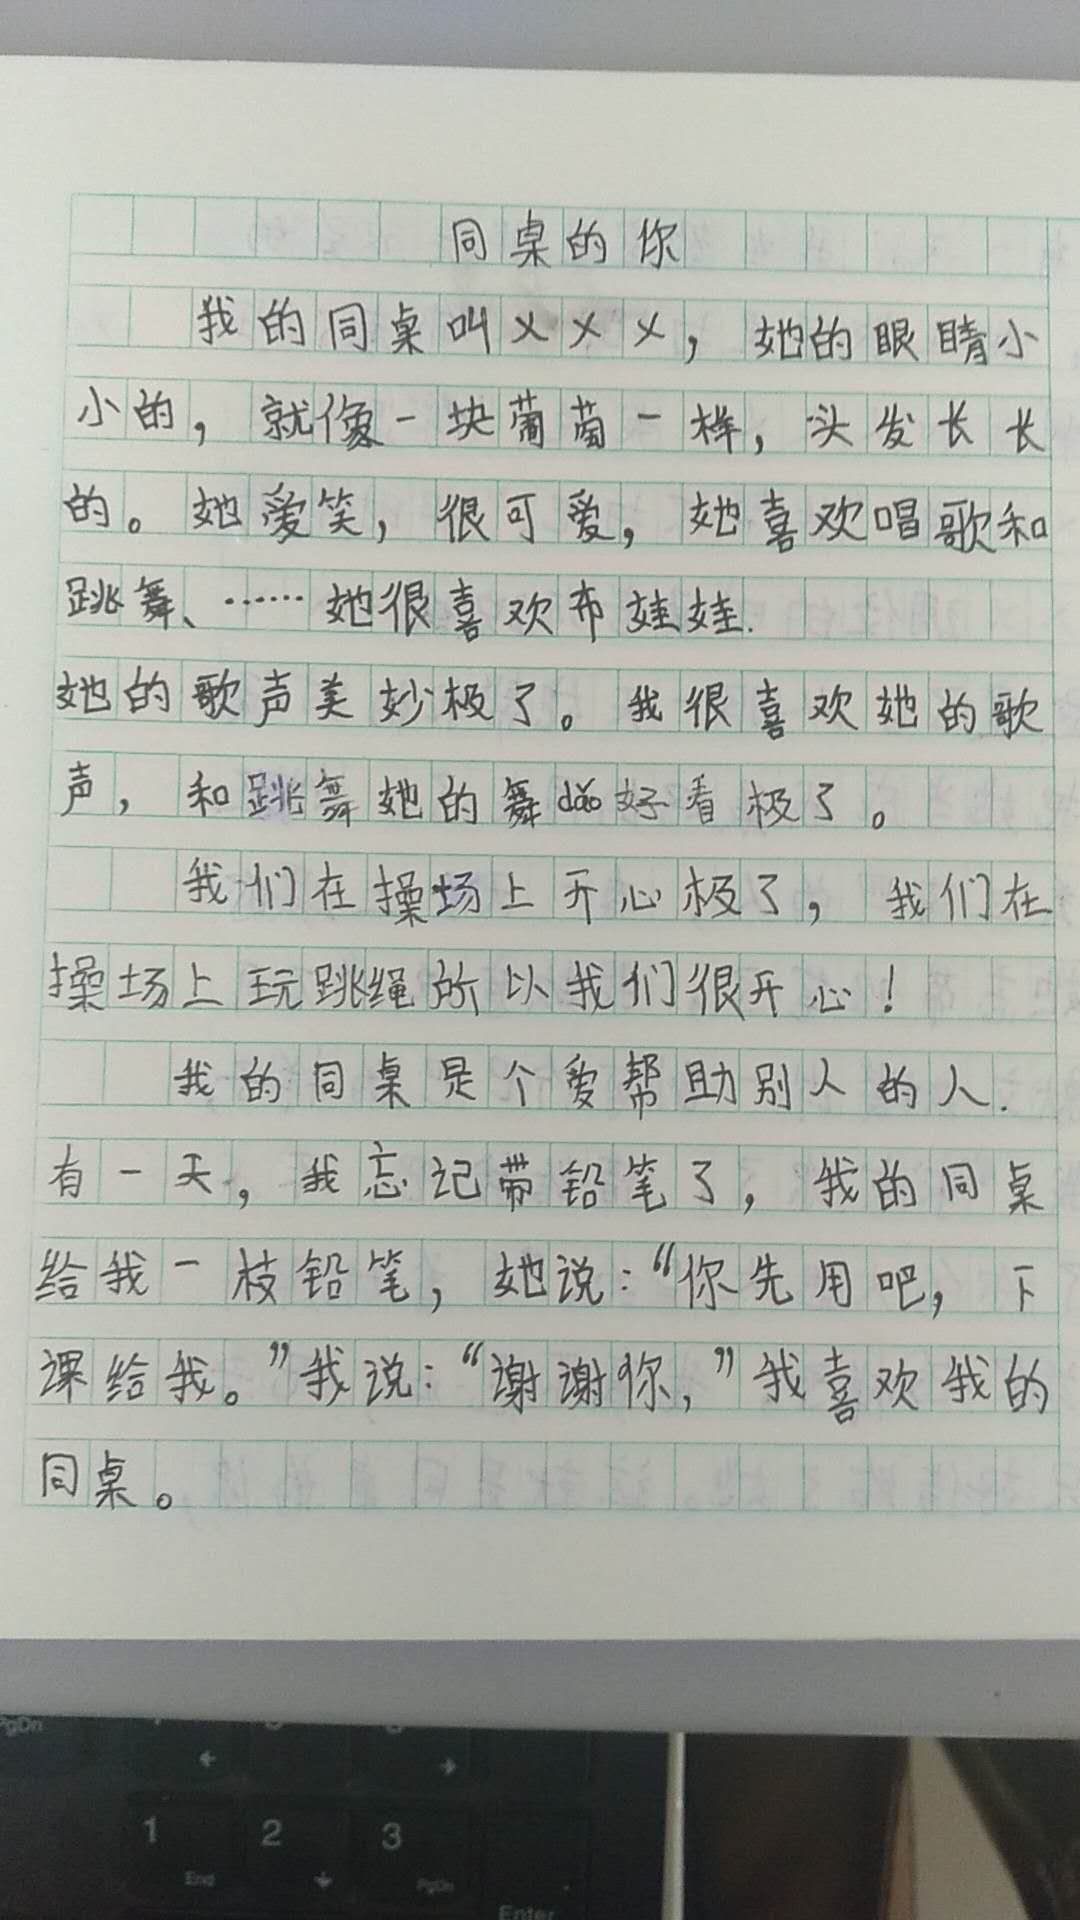 同桌的你
我的同桌叫×××，她的眼睛小
小的，就像一块葡萄一样，头发长长
的。她爱笑，很可爱，她喜欢唱歌和
跳舞、……她很喜欢布娃娃.
她的歌声美妙极了。我很喜欢她的歌
声，和跳舞她的舞dǎo好看极了。
我们在操场上开心极了，我们在
操场上玩跳绳所以我们很开心！
我的同桌是个爱帮助别人的人.
有一天，我忘记带铅笔了，我的同桌
给我一枝铅笔，她说：“你先用吧，下
课给我。”我说：“谢谢你，”我喜欢我的
同桌。
PgDn
1 2 3
End
PgDn
Enter